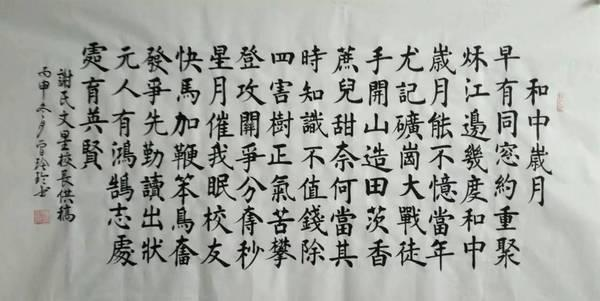 和中歲月
早有同窓約重聚
江邊幾度和中
歲月能不憶當年
尤記礦崗大戰徒
手開山造田茨香
蔗兒甜奈何當其
時知識不值錢除
四害樹正氣苦攀
登攻關爭分奪秒
星月催我眠校友
快馬加鞭笨鳥奮
發爭先勤讀出狀
元人有鴻鵠志處
處育英賢
謝民文星校長供稿
丙申冬月曾玲玲書